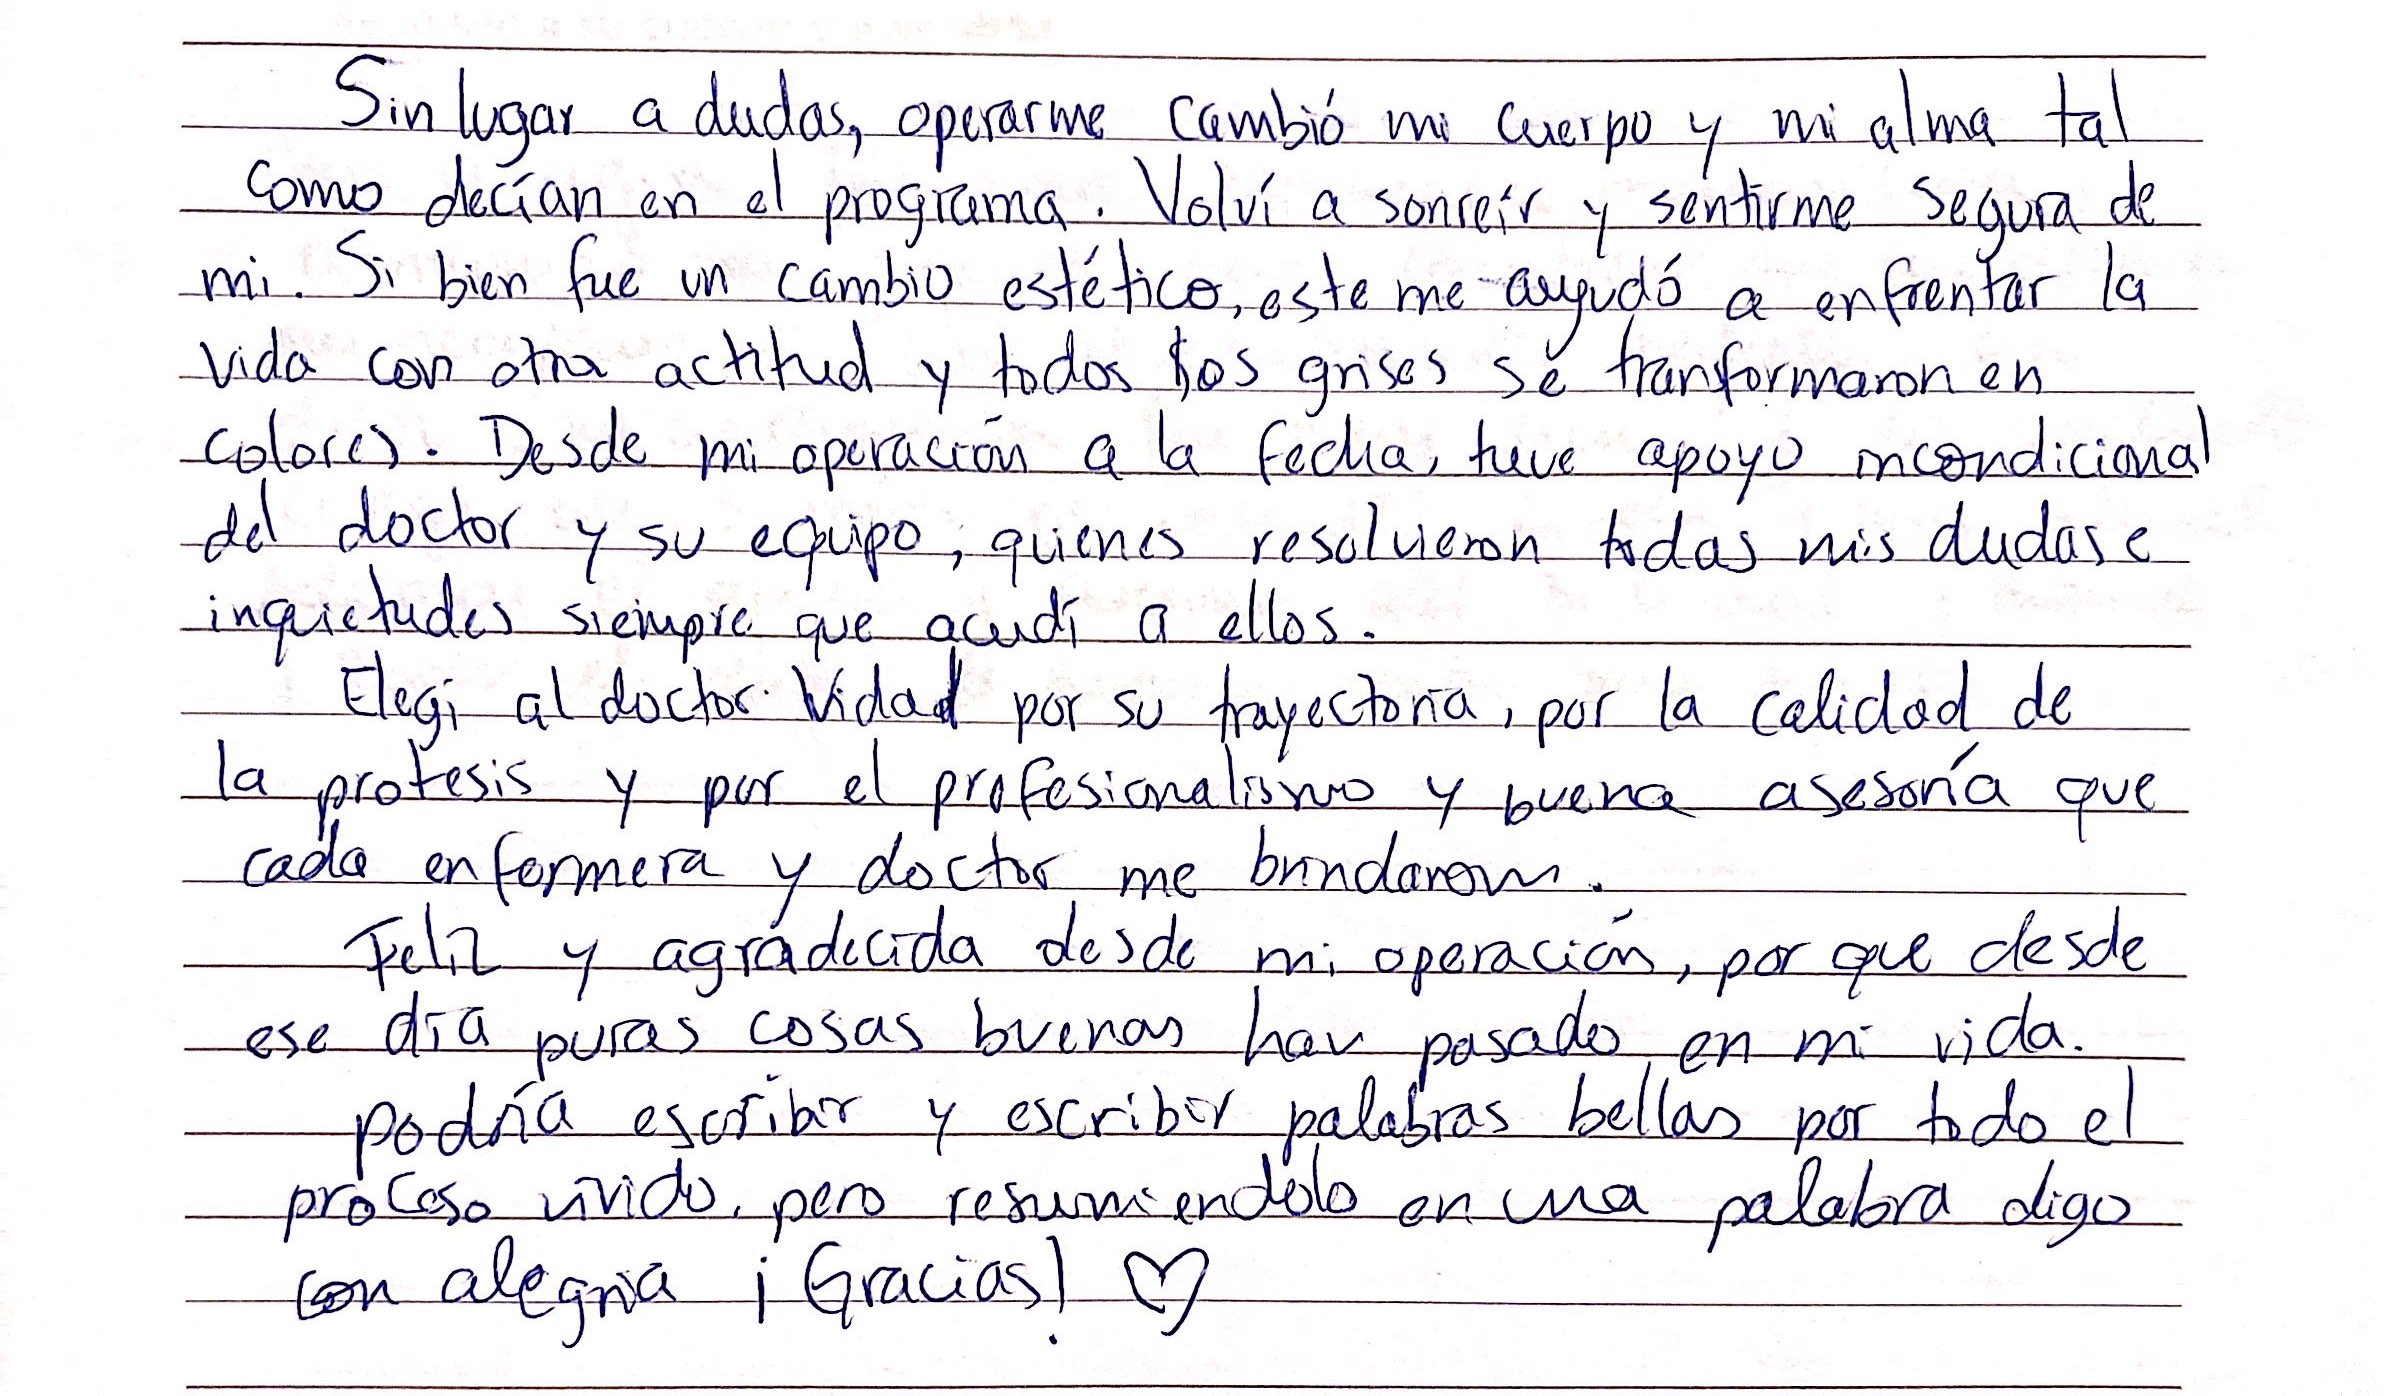 Sin lugar a dudas, operarme cambió mi cuerpo y mi alma tal
como decían en el programa. Volví a sonreír y sentirme segura de
mi. Si bien fue un cambio estético, este me ayudó a enfrentar la
vida con otra actitud y todos los grises se transformaron en
colores. Desde mi operación a la fecha, tuve apoyo incondicional
del doctor y su equipo, quienes resolvieron todas mis dudas e
inquietudes siempre que acudí a ellos.
Elegi al doctor Vidal por su trayectoria, por la calidad de
la protesis y por el profesionalismo y buena asesoría que
cada enfermera y doctor me brindaron.
Feliz y agradecida desde mi operación, por que desde
ese día puras cosas buenas han pasado en mi vida.
Podría escribir y escribir palabras bellas por todo el
proceso vivido, pero resumiendolo en una palabra digo
con alegria ¡Gracias! ♡